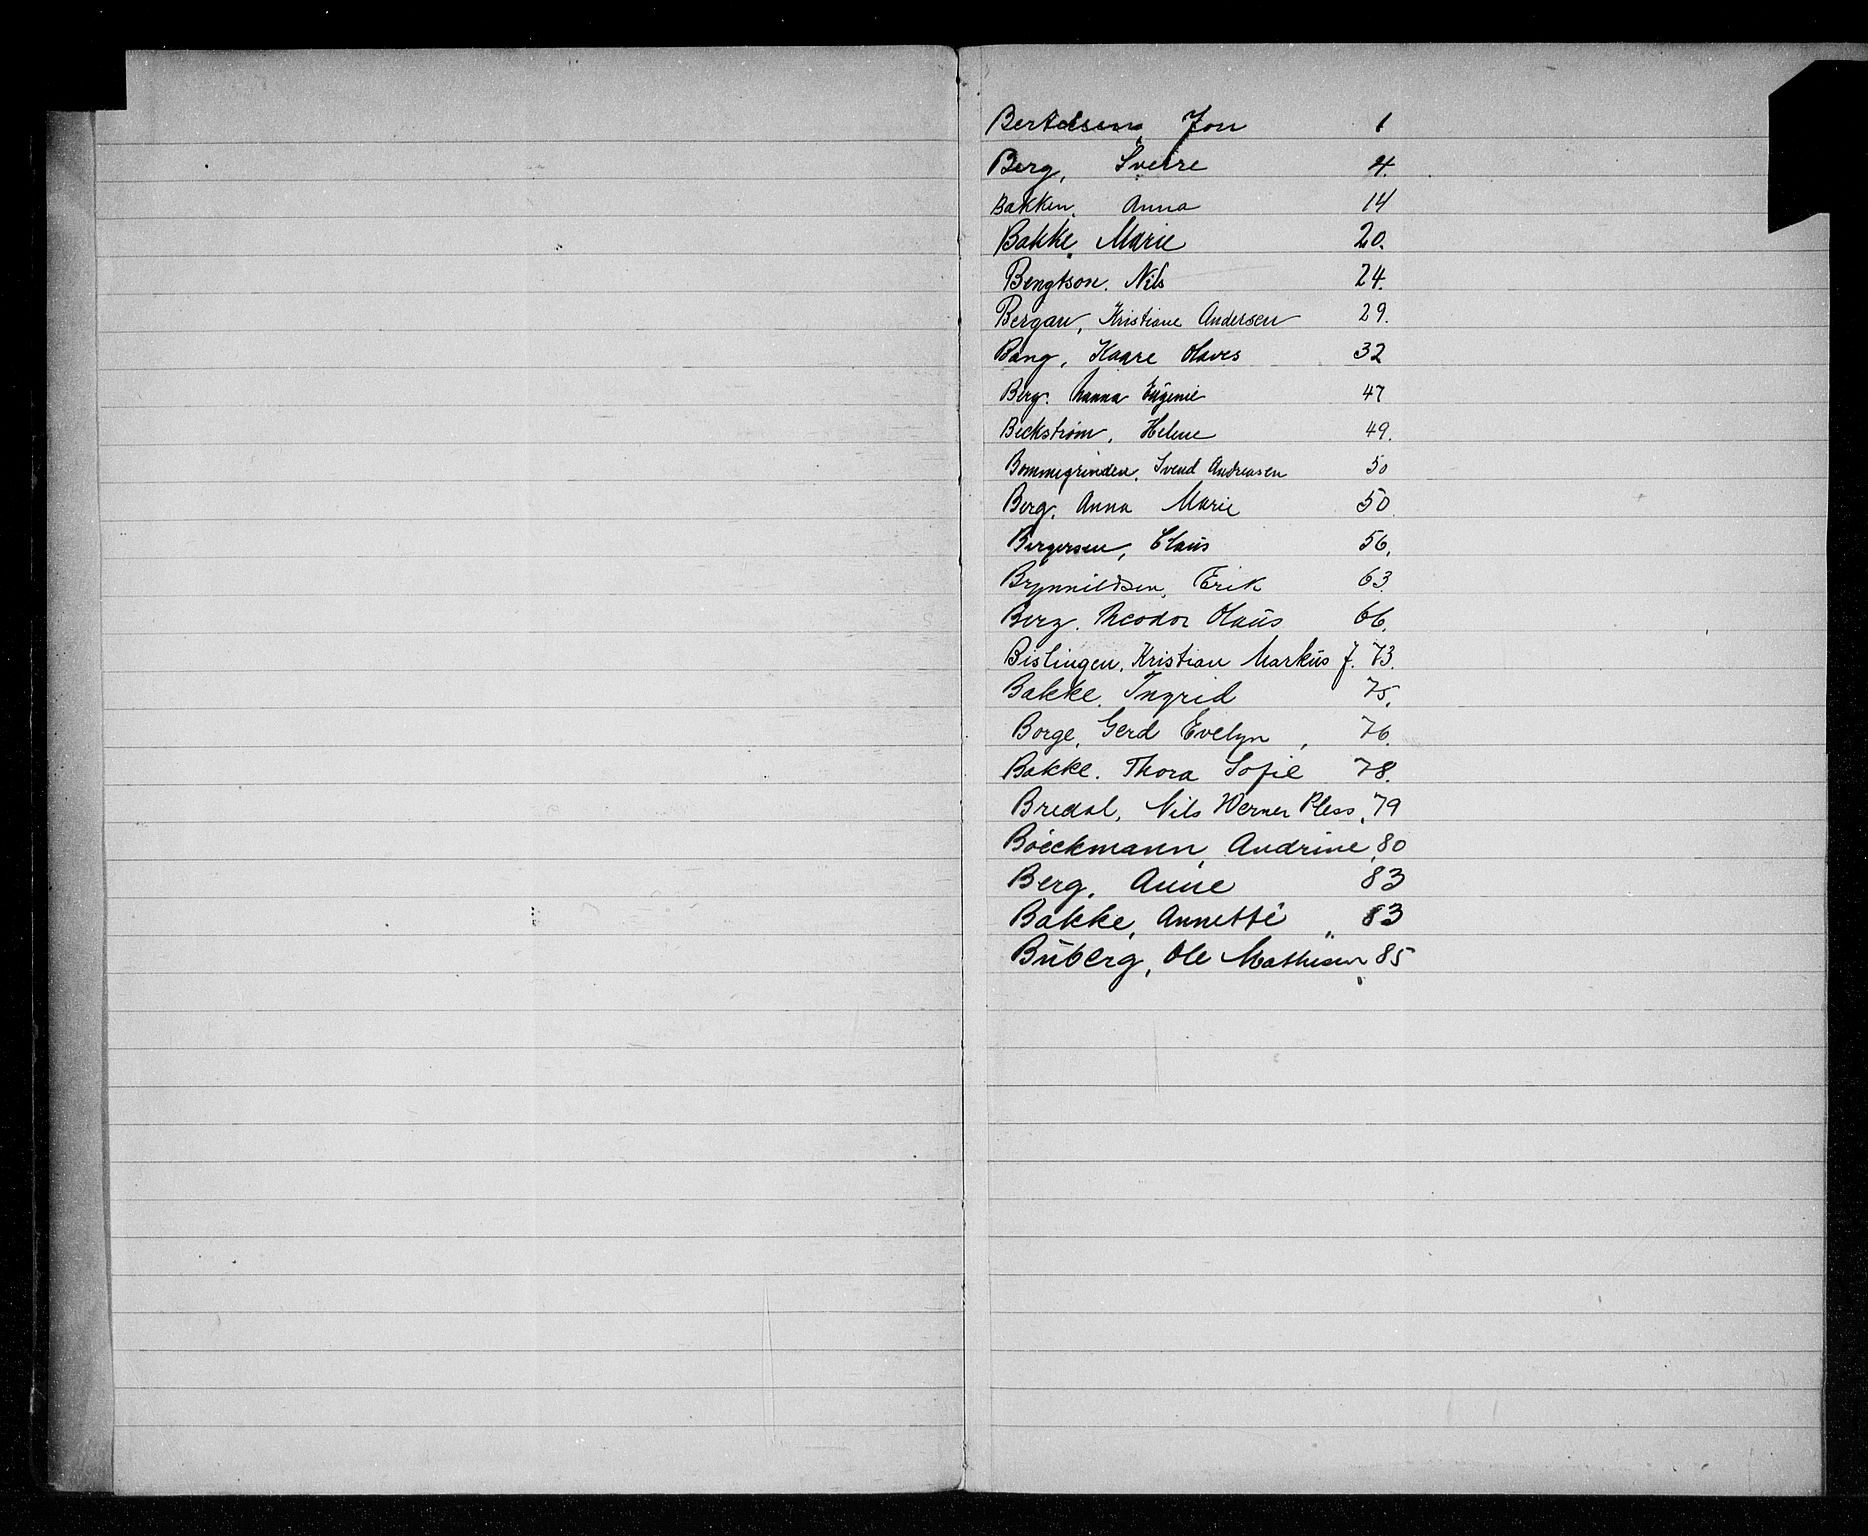 Bertelsen, Jon 1
Berg, Sverre 4.
Bakken, Anna 14
Bakke, Marie 20.
Bengtson, Nils 24.
Bergan, Kristiane Andersen 29.
Bang, Kaare Olaves 32
Berg. Nanna Eügenie 47
Beckstrøm, Helene 49.
Bommegrinden, Svend Andreasen 50
Berg, Anna Marie 50.
Bergersen, Claüs 56.
Brynnildsen, Erik 63.
Berg. Theodor Olaüs 66.
Bislingen, Kristian Marküs J. 73.
Bakke, Ingrid 75.
Borge, Gerd Evelyn, 76.
Bakke. Thora Sofie 78.
Bredal, Nils Werner Pless, 79
Böeckmann, Andrine, 80
Berg, Anne 83
Bakke, Annette „ 83
Büberg, Ole Mathisen 85